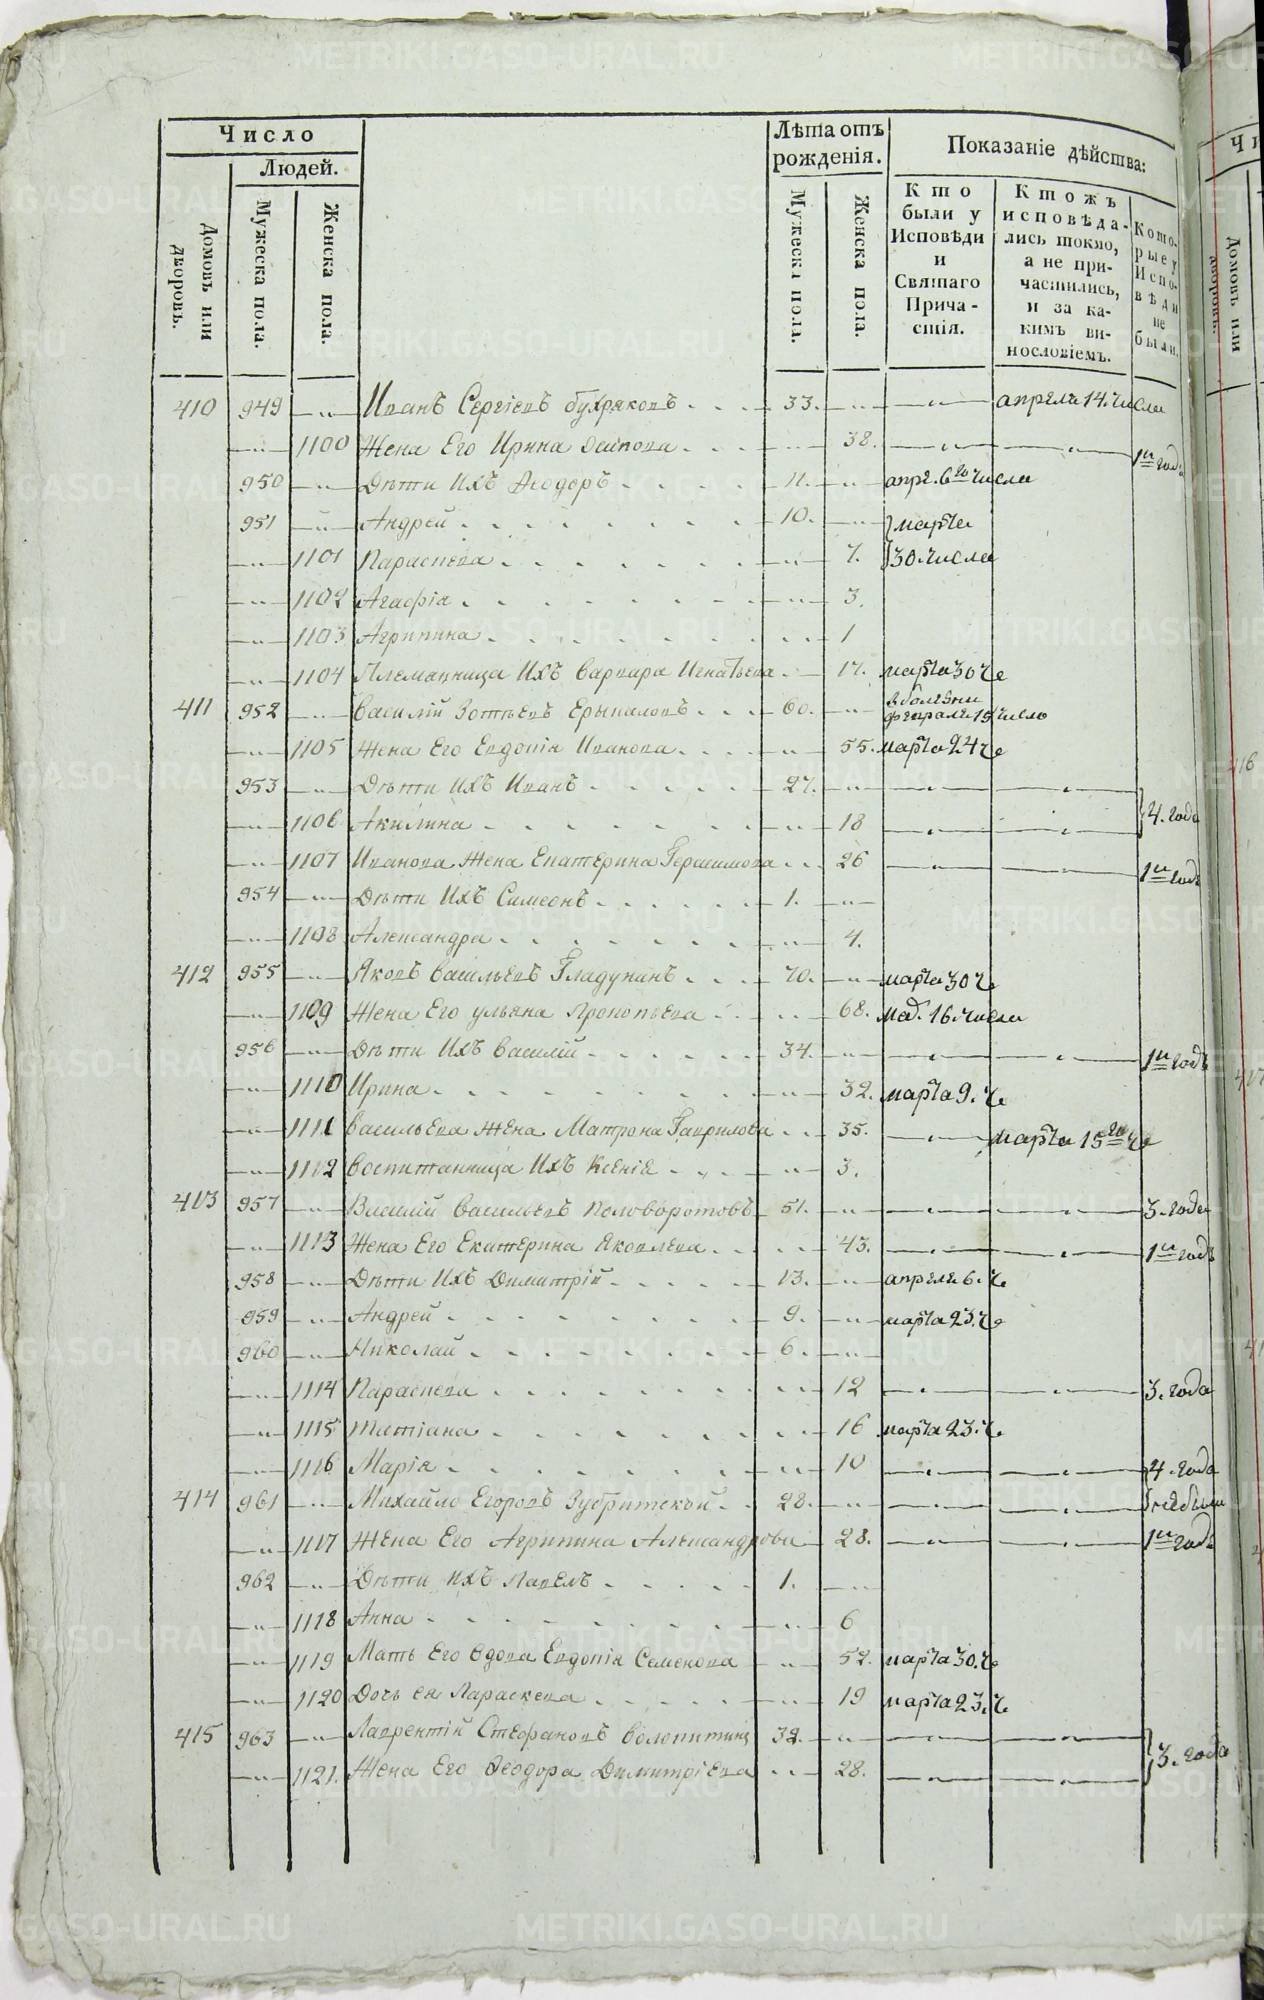 Число
Людей.
Домовъ или дворовъ.
Мужеска пола.
Женска пола.
Лѣта отъ рожденія.
Мужеска пола.
Женска пола.
Показаніе дѣйства:
Кто были у Исповѣди и Святаго Прича-стія.
Ктожъ исповѣда-лись токмо, а не при-частились, и за ка-кимъ ви-нословіемъ.
Кото-рые у Испо-вѣди не были.
410 949 Иванъ Сергіевъ Бухряковъ 33. апреля 14. числа
1100 Жена Его Ирина Осипова 38. 1й годъ
950 Дѣти Ихъ Ѳеодоръ 11. апре. 6го числа
951 Андрей 10. марта
1101 Параскева 7. 30. числа
1102 Агафія 3.
1103 Агрипина 1
1104 Племянница Ихъ Варвара Игнатьева 17. марта 30 че
411 952 Василій Зотѣевъ Ерыкаловъ 60. в болезни февраля 15 число
1105 Жена Его Евдокія Иванова 55. марта 24 че
953 Дѣти Ихъ Иванъ 27.
1106 Акилина 18 4. года
1107 Иванова Жена Екатерина Герасимова 26 1й годъ
954 Дѣти Ихъ Симеонъ 1.
1108 Александра 4.
412 955 Яковъ Васильевъ Гладунанъ 70. марта 30 че
1109 Жена Его Ульяна Прокопьева 68. 16. числа
956 Дѣти Ихъ Василій 34. 1й годъ
1110 Ирина 32. марта 9. че
1111 Васильева Жена Матрона Гаврилова 35. марта 15го че
1112 Воспитанница Ихъ Ксенія 3.
413 957 Василій Васильевъ Половоротовъ 51. 3. года
1113 Жена Его Екатерина Яковлева 43. 1й годъ
958 Дѣти Ихъ Димитрій 13. апреля 6. че
959 Андрей 9. марта 23. че
960 Николай 6.
1114 Параскева 12 3. года
1115 Татіана 16 марта 23. че
1116 Марія 10 4. года
414 961 Михайло Егоровъ Зубритскъй 28. не были
1117 Жена Его Агрипина Александрова 28. 1й годъ
962 Дѣти Ихъ Павелъ 1.
1118 Анна 6
1119 Мать Его Вдова Евдокія Семенова 52. марта 30. че
1120 Дочь ея Параскева 19 марта 23. че
415 963 Лаврентій Стефановъ Волокитинъ 32.
1121. Жена Его Ѳеодора Димитріева 28. 3. года
METRIKI.GASO-URAL.RU